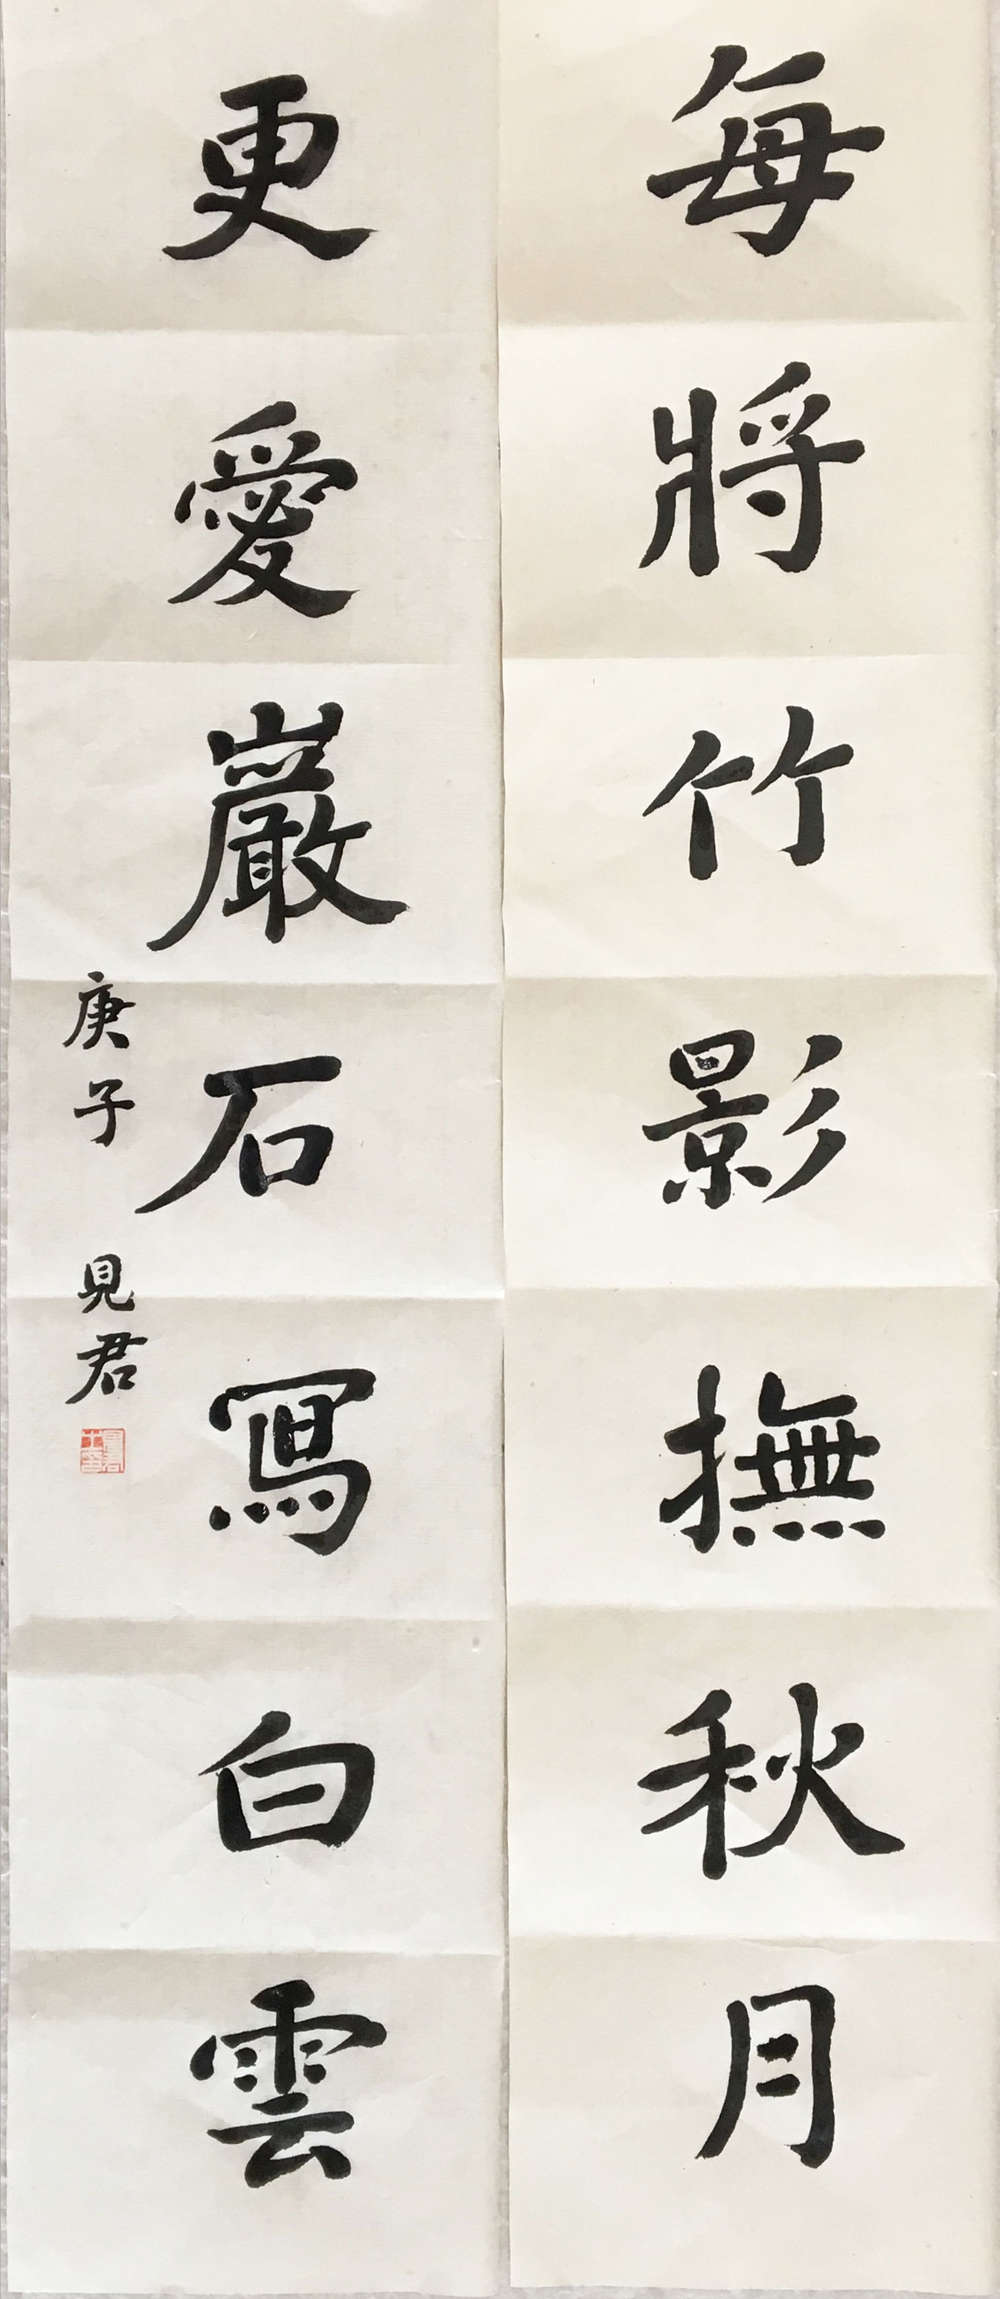 每將竹影撫秋月
更愛巖石寫白雲
庚子 見君